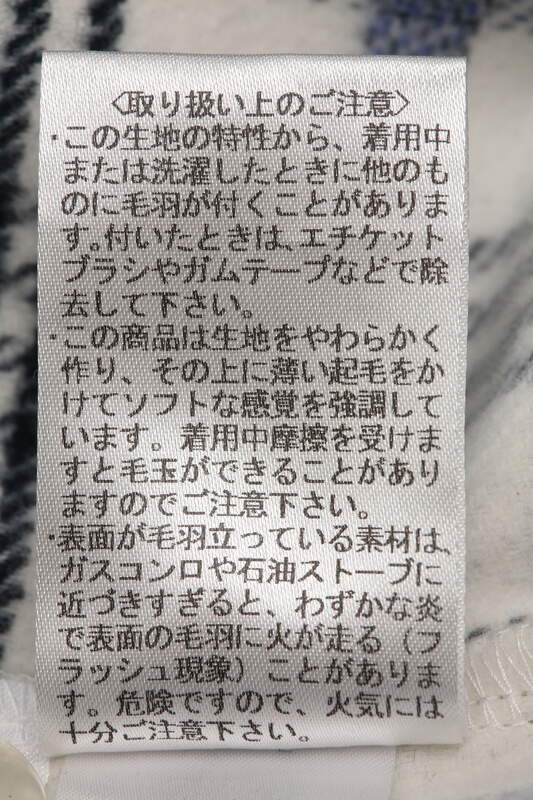 〈取り扱い上のご注意〉
・この生地の特性から、着用中
または洗濯したときに他のも
のに毛羽が付くことがありま
す。付いたときは、エチケット
ブラシやガムテープなどで除
去して下さい。
・この商品は生地をやわらかく
作り、その上に薄い起毛をか
けてソフトな感覚を強調して
います。着用中摩擦を受けま
すと毛玉ができることがあり
ますのでご注意下さい。
・表面が毛羽立っている素材は、
ガスコンロや石油ストーブに
近づきすぎると、わずかな炎
で表面の毛羽に火が走る（フ
ラッシュ現象）ことがありま
す。危険ですので、火気には
十分ご注意下さい。